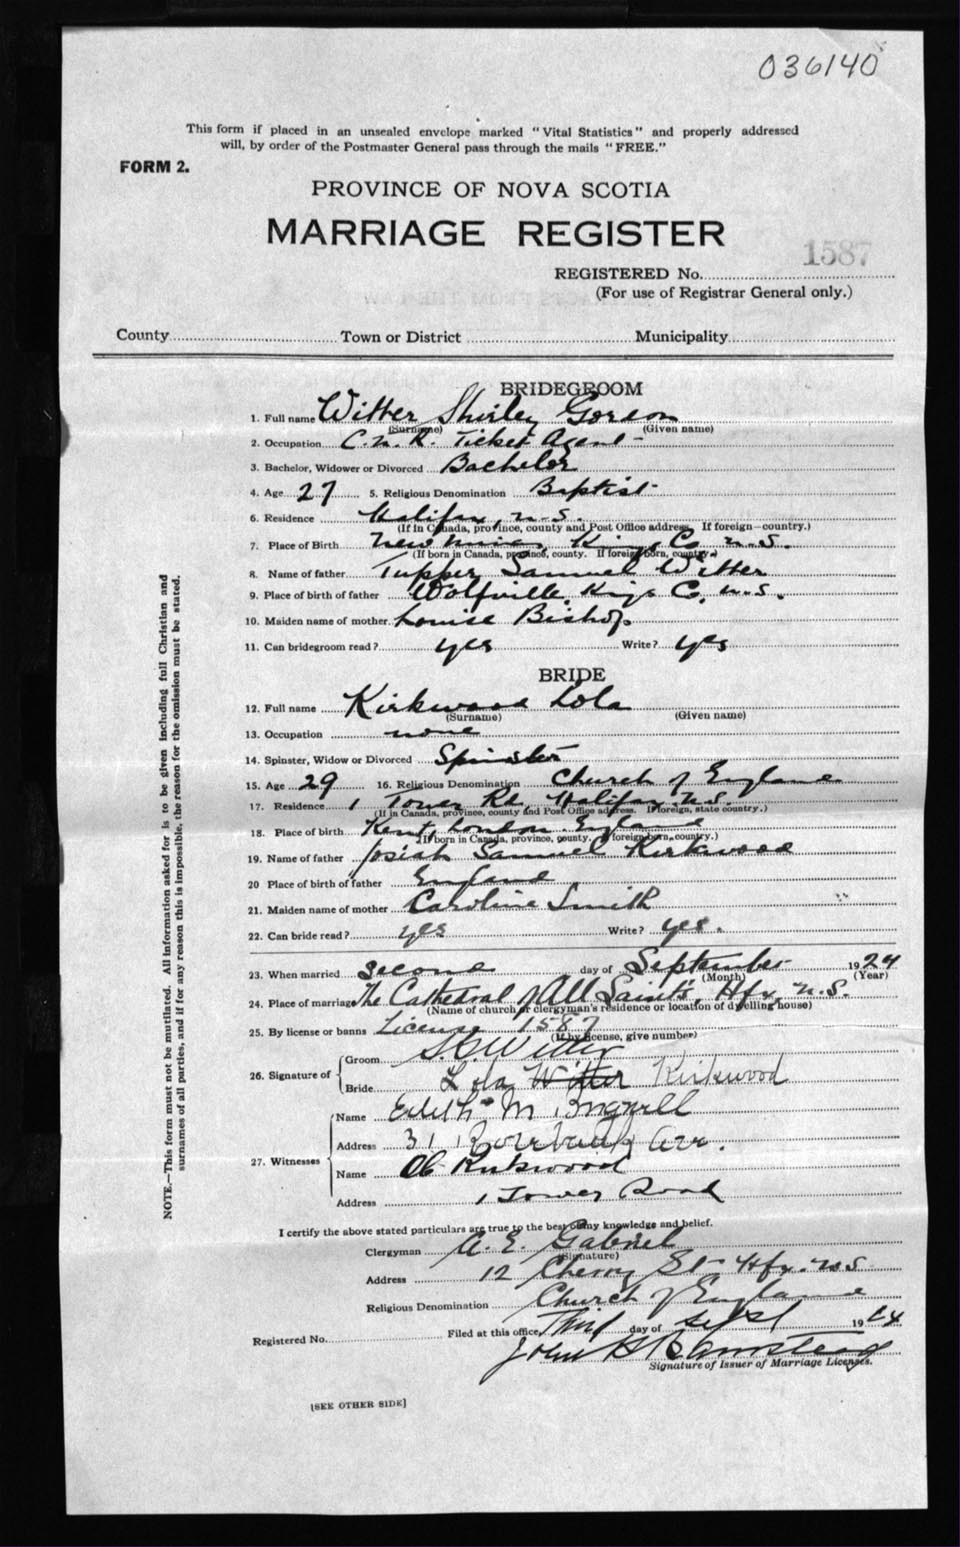 036140
This form if placed in an unsealed envelope marked "Vital Statistics" and properly addressed
will, by order of the Postmaster General pass through the mails "FREE."
FORM 2.
PROVINCE OF NOVA SCOTIA
MARRIAGE REGISTER
1587
REGISTERED No.
(For use of Registrar General only.)
County Town or District Municipality
BRIDEGROOM
1. Full name Witter Shirley Gordon
(Surname) (Given name)
2. Occupation C.N.R. Ticket Agent
3. Bachelor, Widower or Divorced Bachelor
4. Age 27 5. Religious Denomination Baptist
6. Residence Halifax, N.S.
(If in Canada, province, county and Post Office address. If foreign—country.)
7. Place of Birth New Minas, Kings Co. N.S.
(If born in Canada, province, county. If foreign born, country.)
8. Name of father Tupper Samuel Witter
9. Place of birth of father Wolfville, Kings Co. N.S.
10. Maiden name of mother Louise Bishop
11. Can bridegroom read? yes Write? yes
BRIDE
12. Full name Kirkwood Lola
(Surname) (Given name)
13. Occupation none
14. Spinster, Widow or Divorced Spinster
15. Age 29 16. Religious Denomination Church of England
17. Residence 1 Tower Rd. Halifax N.S.
(If in Canada, province, county and Post Office address. If foreign, state country.)
18. Place of birth Kent, London. England
(If born in Canada, province, county. If foreign born, country.)
19. Name of father Josiah Samuel Kirkwood
20 Place of birth of father England
21. Maiden name of mother Caroline Smith
22. Can bride read? yes Write? yes.
23. When married second day of September 1924
(Month) (Year)
24. Place of marriage The Cathedral of All Saints, Hfx, N.S.
(Name of church or clergyman's residence or location of dwelling house)
25. By license or banns License 1587
(If by license, give number)
26. Signature of Groom S.G. Witter
Bride Lola Witter Kirkwood
27. Witnesses Name Edith M
Address 31
Name Kirkwood
Address 1 Tower Road
I certify the above stated particulars are true to the best of my knowledge and belief.
Clergyman A. E. Gabriel
(Signature)
Address 12 Cherry St Hfx. N.S.
Religious Denomination Church of England
Registered No. Filed at this office, Third day of Sept 1924
John
Signature of Issuer of Marriage Licenses.
[SEE OTHER SIDE]
NOTE.—This form must not be mutilated. All information asked for is to be given including full Christian and
surnames of all parties, and if for any reason this is impossible, the reason for the omission must be stated.